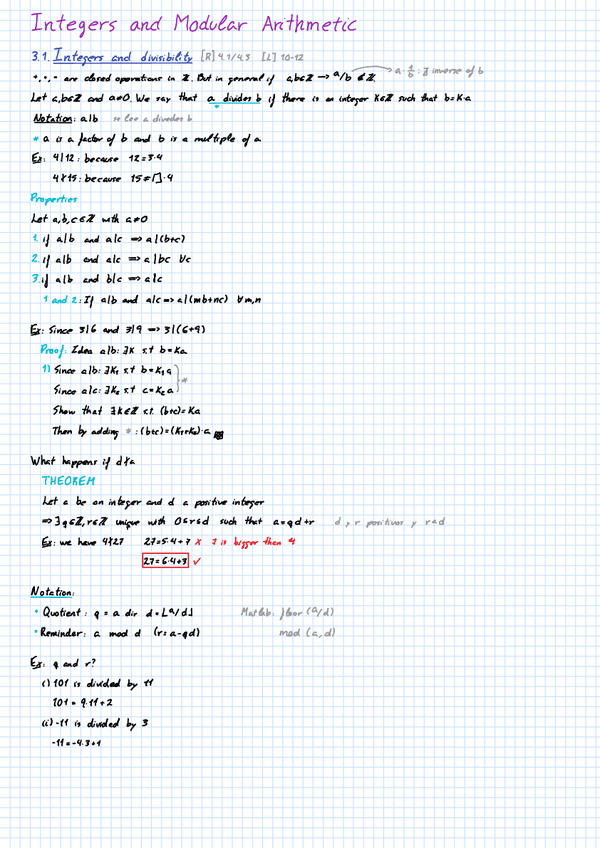 Integers and Modular Arithmetic
3.1. Integers and divisibility [R] 4.1/4.3 [L] 10-12
+,-,· are closed operations in ℤ. But in general if a,b∈ℤ → a/b ∉ ℤ a·1/b : ∄ inverse of b
Let a,b∈ℤ and a≠0. We say that a divides b if there is an integer K∈ℤ such that b=K·a
Notation: a|b se lee a divedes b
* a is a factor of b and b is a multiple of a
Ex: 4|12: because 12=3·4
4∤15: because 15≠[]·4
Properties
Let a,b,c∈ℤ with a≠0
1. if a|b and a|c => a|(b+c)
2. if a|b and a|c => a|bc ∀c
3. if a|b and b|c => a|c
1 and 2: If a|b and a|c => a|(mb+nc) ∀m,n
Ex: Since 3|6 and 3|9 => 3|(6+9)
Proof: Idea a|b: ∃K s.t b=Ka
1) Since a|b: ∃K₁ s.t b=K₁a
Since a|c: ∃K₂ s.t c=K₂a *
Show that ∃K∈ℤ s.t. (b+c)=Ka
Then by adding *: (b+c)=(K₁+K₂)·a
What happens if d∤a
THEOREM
Let a be an integer and d a positive integer
=> ∃q∈ℤ, r∈ℤ unique with 0≤r≤d such that a=qd+r d y r positivos y r<d
Ex: we have 4∤27 27=5·4+7 × 7 is bigger then 4
27=6·4+3 ✓
Notation:
• Quotient: q = a div d = ⌊a/d⌋ Matlab: floor (a/d)
• Reminder: a mod d (r=a-qd) mod (a,d)
Ex: q and r?
(i) 101 is divided by 11
101 = 9·11+2
(ii) -11 is divided by 3
-11=-4·3+1